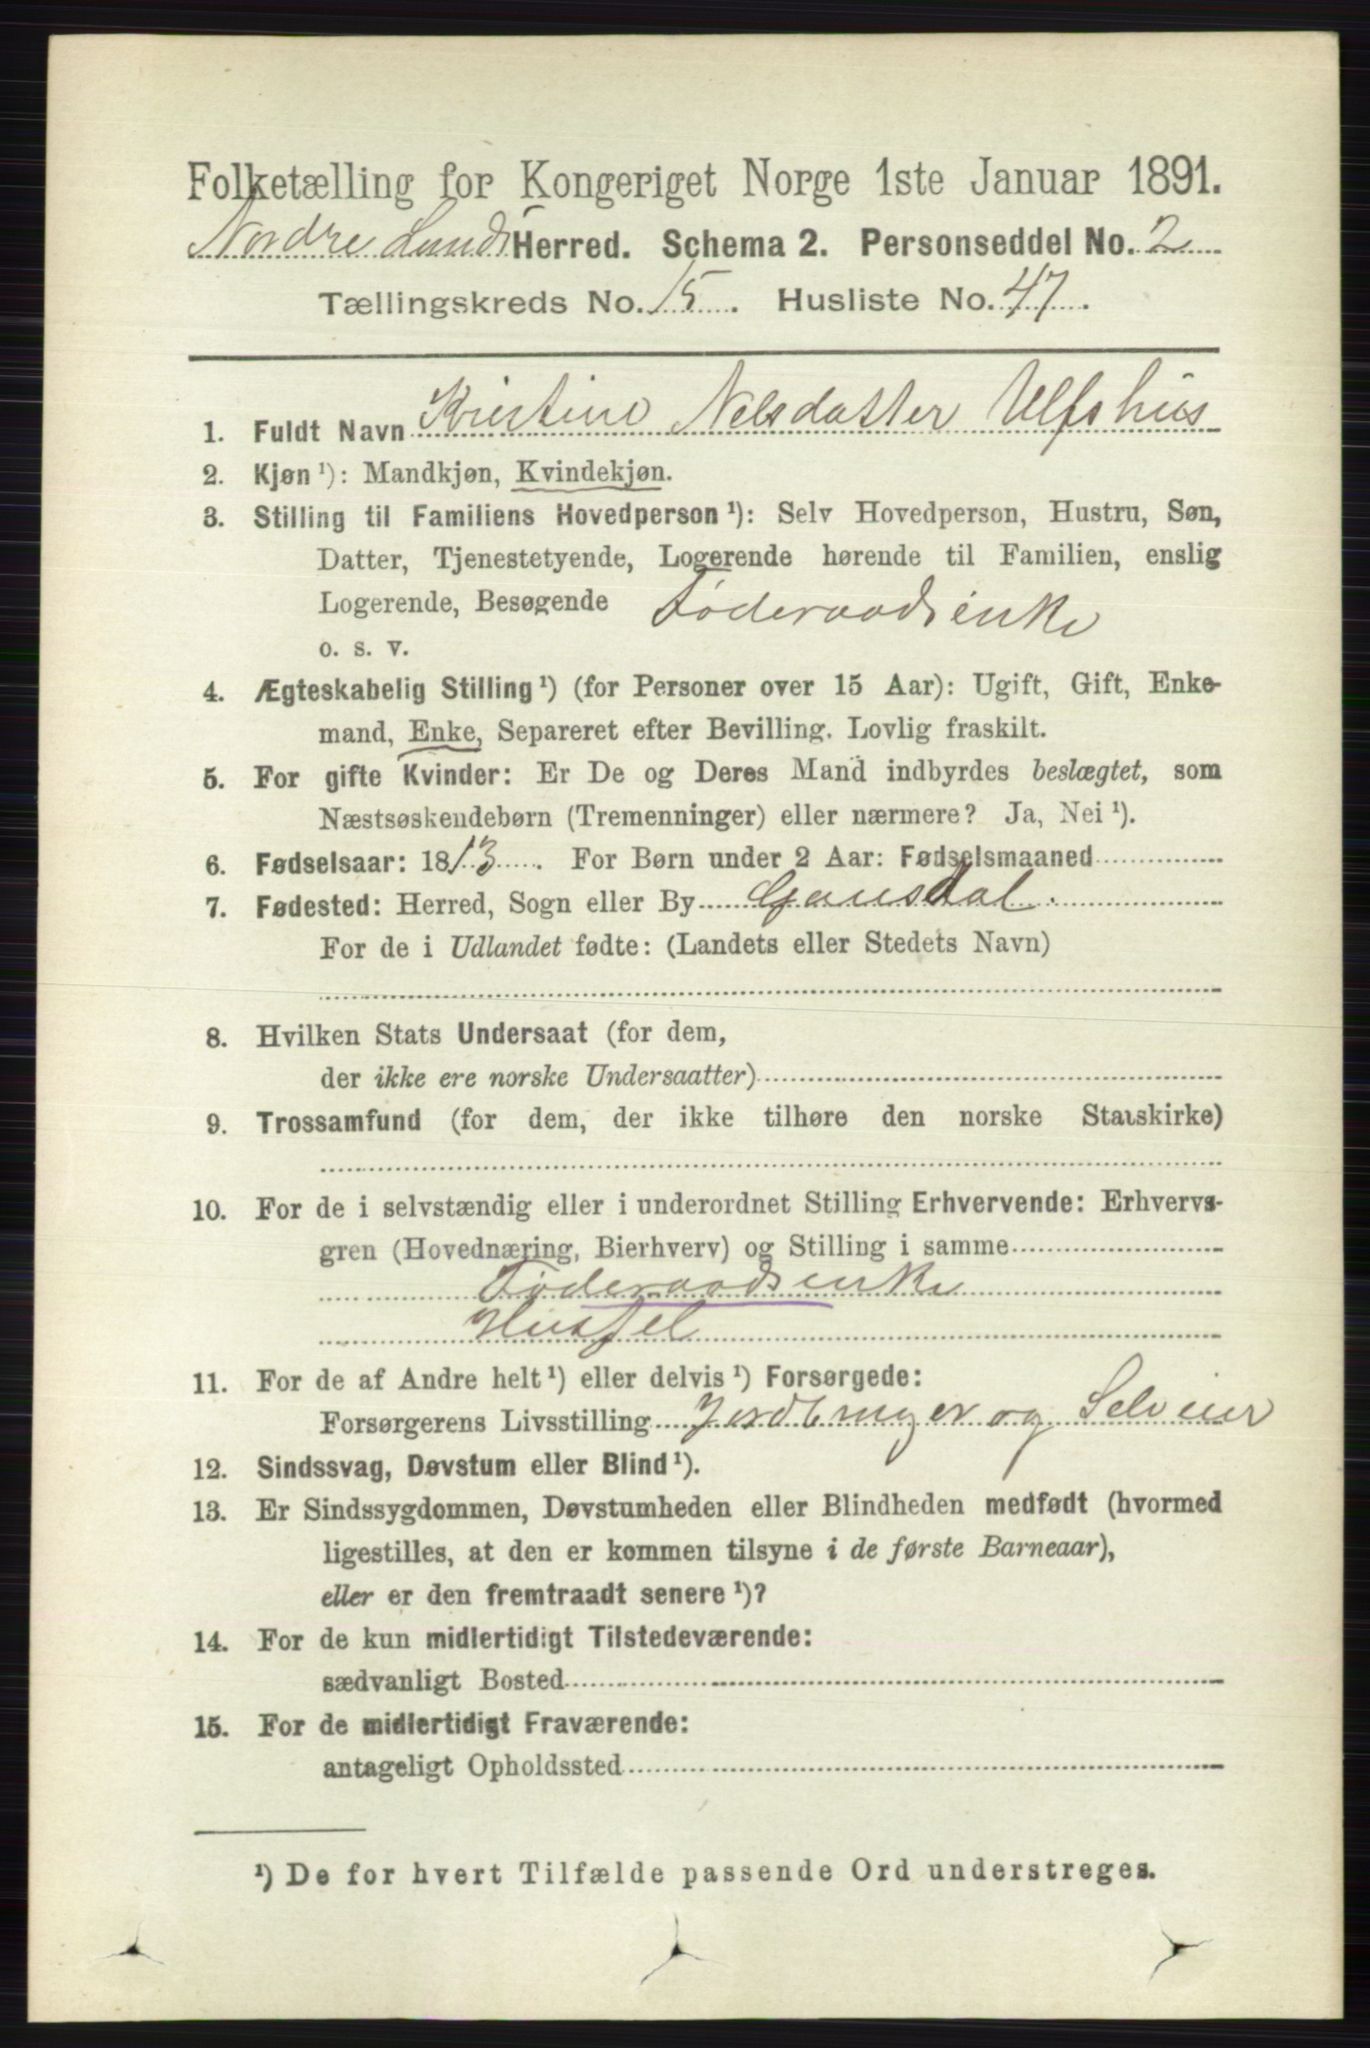 Folketælling for Kongeriget Norge 1ste Januar 1891.
Nordre Land Herred. Schema 2. Personseddel No. 2
Tællingskreds No. 15. Husliste No. 47.
1. Fuldt Navn Kristine Nelsdatter Ulfshus
2. Kjøn ¹): Mandkjøn, Kvindekjøn.
3. Stilling til Familiens Hovedperson ¹): Selv Hovedperson, Hustru, Søn,
Datter, Tjenestetyende, Logerende hørende til Familien, enslig
Logerende, Besøgende Føderaadsenke
o. s. v.
4. Ægteskabelig Stilling ¹) (for Personer over 15 Aar): Ugift, Gift, Enke-
mand, Enke, Separeret efter Bevilling. Lovlig fraskilt.
5. For gifte Kvinder: Er De og Deres Mand indbyrdes beslægtet, som
Næstsøskendebørn (Tremenninger) eller nærmere? Ja, Nei ¹).
6. Fødselsaar: 1813. For Børn under 2 Aar: Fødselsmaaned
7. Fødested: Herred, Sogn eller By Gausdal.
For de i Udlandet fødte: (Landets eller Stedets Navn)
8. Hvilken Stats Undersaat (for dem,
der ikke ere norske Undersaatter)
9. Trossamfund (for dem, der ikke tilhøre den norske Statskirke)
10. For de i selvstændig eller i underordnet Stilling Erhvervende: Erhvervs-
gren (Hovednæring, Bierhverv) og Stilling i samme
Føderaadsenke
11. For de af Andre helt ¹) eller delvis ¹) Forsørgede:
Forsørgerens Livsstilling Jordbruger og Selveier
12. Sindssvag, Døvstum eller Blind ¹).
13. Er Sindssygdommen, Døvstumheden eller Blindheden medfødt (hvormed
ligestilles, at den er kommen tilsyne i de første Barneaar),
eller er den fremtraadt senere ¹)?
14. For de kun midlertidigt Tilstedeværende:
sædvanligt Bosted
15. For de midlertidigt Fraværende:
antageligt Opholdssted
¹) De for hvert Tilfælde passende Ord understreges.